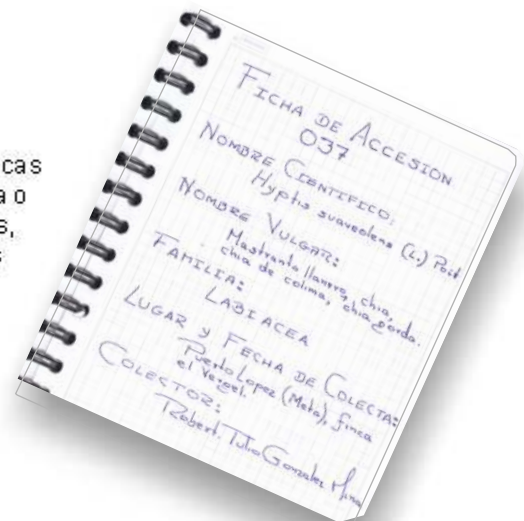 cas
a o
s,
s
FICHA DE ACCESION
037
NOMBRE CIENTIFICO:
Hyptis suaveolens (L.) Poit
NOMBRE VULGAR:
Mastranto llanero, chia,
chia de colima, chia gorda.
FAMILIA:
LABIACEA
LUGAR Y FECHA DE COLECTA:
Puerto Lopez (Meta), finca
el Vergel.
COLECTOR:
Robert. Tulio Gonzalez Mina